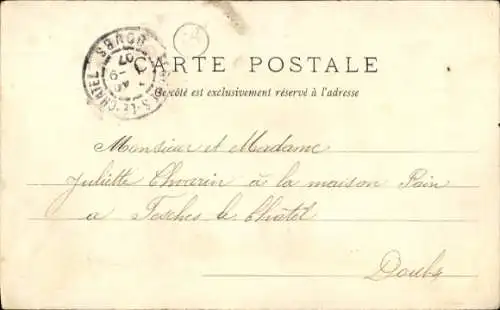 CARTE POSTALE
Ce côté est exclusivement réservé à l'adresse
Monsieur et Madame
Juliette Chvarin à la maison Pain
a Fesches le Chatel
Doubs